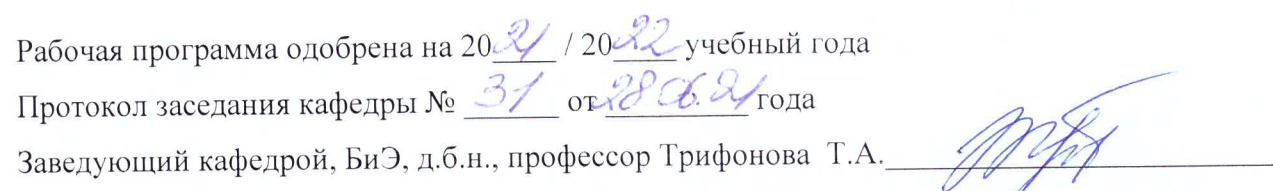 Рабочая программа одобрена на 2021 / 2022 учебный года
Протокол заседания кафедры № 31 от 28.06.21 года
Заведующий кафедрой, БиЭ, д.б.н., профессор Трифонова Т.А.